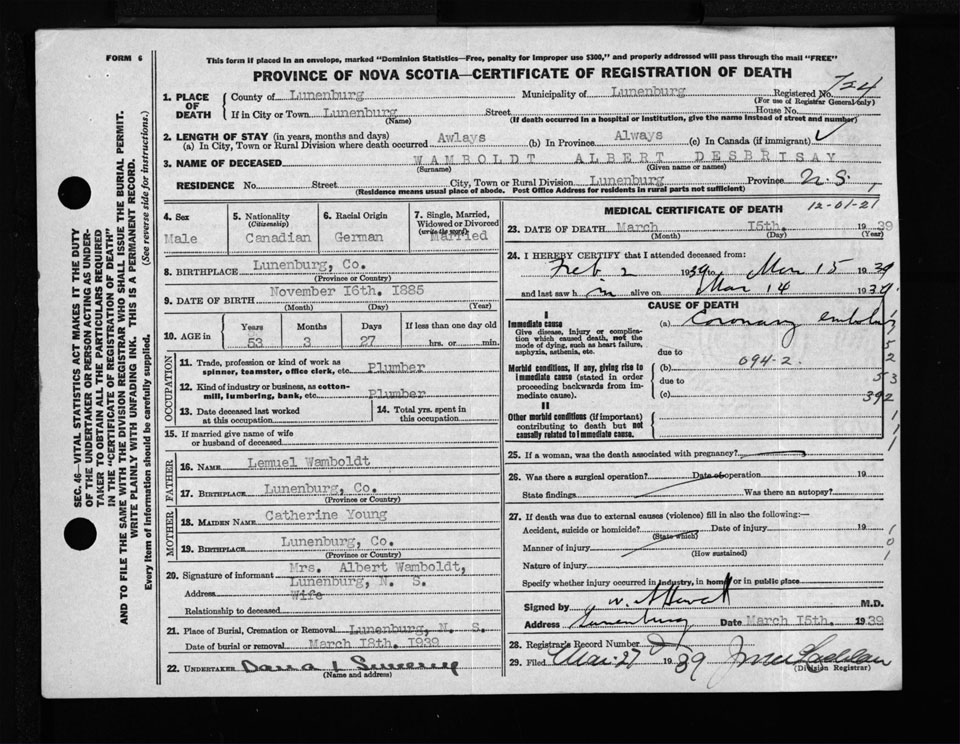 FORM 6
This form if placed in an envelope, marked "Dominion Statistics—Free, penalty for improper use $300," and properly addressed will pass through the mail "FREE"
PROVINCE OF NOVA SCOTIA—CERTIFICATE OF REGISTRATION OF DEATH
SEC. 46—VITAL STATISTICS ACT MAKES IT THE DUTY
OF THE UNDERTAKER OR PERSON ACTING AS UNDER-
TAKER TO OBTAIN ALL THE PARTICULARS REQUIRED
IN THE "CERTIFICATE OF REGISTRATION OF DEATH"
AND TO FILE THE SAME WITH THE DIVISION REGISTRAR WHO SHALL ISSUE THE BURIAL PERMIT.
WRITE PLAINLY WITH UNFADING INK. THIS IS A PERMANENT RECORD.
Every item of Information should be carefully supplied. (See reverse side for instructions.)
1. PLACE OF DEATH County of Lunenburg Municipality of Lunenburg Registered No. 724
(For use of Registrar General only)
If in City or Town Lunenburg Street House No.
(Name) (If death occurred in a hospital or institution, give the name instead of street and number)
2. LENGTH OF STAY (in years, months and days)
(a) In City, Town or Rural Division where death occurred Awlays (b) In Province Always (c) In Canada (if immigrant)
3. NAME OF DECEASED WAMBOLDT ALBERT DESBRISAY
(Surname) (Given name or names)
RESIDENCE No. Street City, Town or Rural Division Lunenburg Province N.S.
(Residence means usual place of abode. Post Office Address for residents in rural parts not sufficient)
4. Sex Male
5. Nationality (Citizenship) Canadian
6. Racial Origin German
7. Single, Married, Widowed or Divorced (write the word) Married
8. BIRTHPLACE Lunenburg, Co.
(Province or Country)
9. DATE OF BIRTH November 16th. 1885
(Month) (Day) (Year)
10. AGE in Years 53 Months 3 Days 27 If less than one day old hrs. or min.
OCCUPATION
11. Trade, profession or kind of work as spinner, teamster, office clerk, etc. Plumber
12. Kind of industry or business, as cotton-mill, lumbering, bank, etc. Plumber
13. Date deceased last worked at this occupation
14. Total yrs. spent in this occupation
15. If married give name of wife or husband of deceased
FATHER
16. NAME Lemuel Wamboldt
17. BIRTHPLACE Lunenburg, Co.
(Province or Country)
MOTHER
18. MAIDEN NAME Catherine Young
19. BIRTHPLACE Lunenburg, Co.
(Province or Country)
20. Signature of informant Mrs. Albert Wamboldt,
Address Lunenburg, N. S.
Relationship to deceased Wife
21. Place of Burial, Cremation or Removal Lunenburg, N. S.
Date of burial or removal March 18th. 1939
22. UNDERTAKER
(Name and address)
MEDICAL CERTIFICATE OF DEATH
12-01-21
23. DATE OF DEATH March 15th. 1939
(Month) (Day) (Year)
24. I HEREBY CERTIFY that I attended deceased from:
Feb 2 1939 to Mar 15 1939
and last saw h m alive on Mar 14 1939.
CAUSE OF DEATH
I
Immediate cause
Give disease, injury or complication which caused death, not the mode of dying, such as heart failure, asphyxia, asthenia, etc.
(a) Coronary embolus
due to
094-2.
Morbid conditions, if any, giving rise to immediate cause (stated in order proceeding backwards from immediate cause).
(b)
due to
(c) 392
II
Other morbid conditions (if important) contributing to death but not causally related to immediate cause.
25. If a woman, was the death associated with pregnancy?
26. Was there a surgical operation? Date of operation 19
State findings Was there an autopsy?
27. If death was due to external causes (violence) fill in also the following:—
Accident, suicide or homicide? Date of injury 19
(State which)
Manner of injury
(How sustained)
Nature of injury
Specify whether injury occurred in industry, in home or in public place
Signed by M.D.
Address Lunenburg Date March 15th. 1939
28. Registrar's Record Number
29. Filed Mar. 27 1939
(Division Registrar)